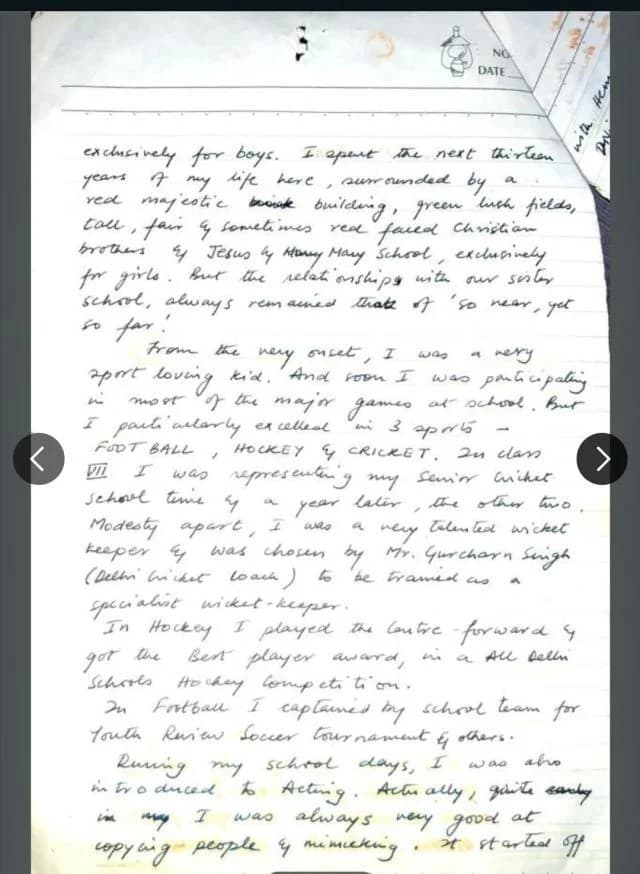 NO.
DATE
with Hem
exclusively for boys. I spent the next thirteen
years of my life here, surrounded by a
red majestic building, green lush fields,
tall, fair & sometimes red faced Christian
brothers & Jesus & Mary School, exclusively
for girls. But the relationships with our sister
school, always remained that of 'so near, yet
so far'.
From the very onset, I was a very
sport loving kid. And soon I was participating
in most of the major games at school. But
I particularly excelled in 3 sports -
FOOTBALL, HOCKEY & CRICKET. In class
VII I was representing my Senior Cricket
School time & a year later, the other two.
Modesty apart, I was a very talented wicket
keeper & was chosen by Mr. Gurcharn Singh
(Delhi Cricket Coach) to be trained as a
specialist wicket-keeper.
In Hockey I played the Centre-forward &
got the Best player award, in a All Delhi
Schools Hockey Competition.
In Football I captained by school team for
Youth Review Soccer tournament & others.
During my school days, I was also
introduced to Acting. Actually, quite early
in my I was always very good at
copying people & mimicking. It started off